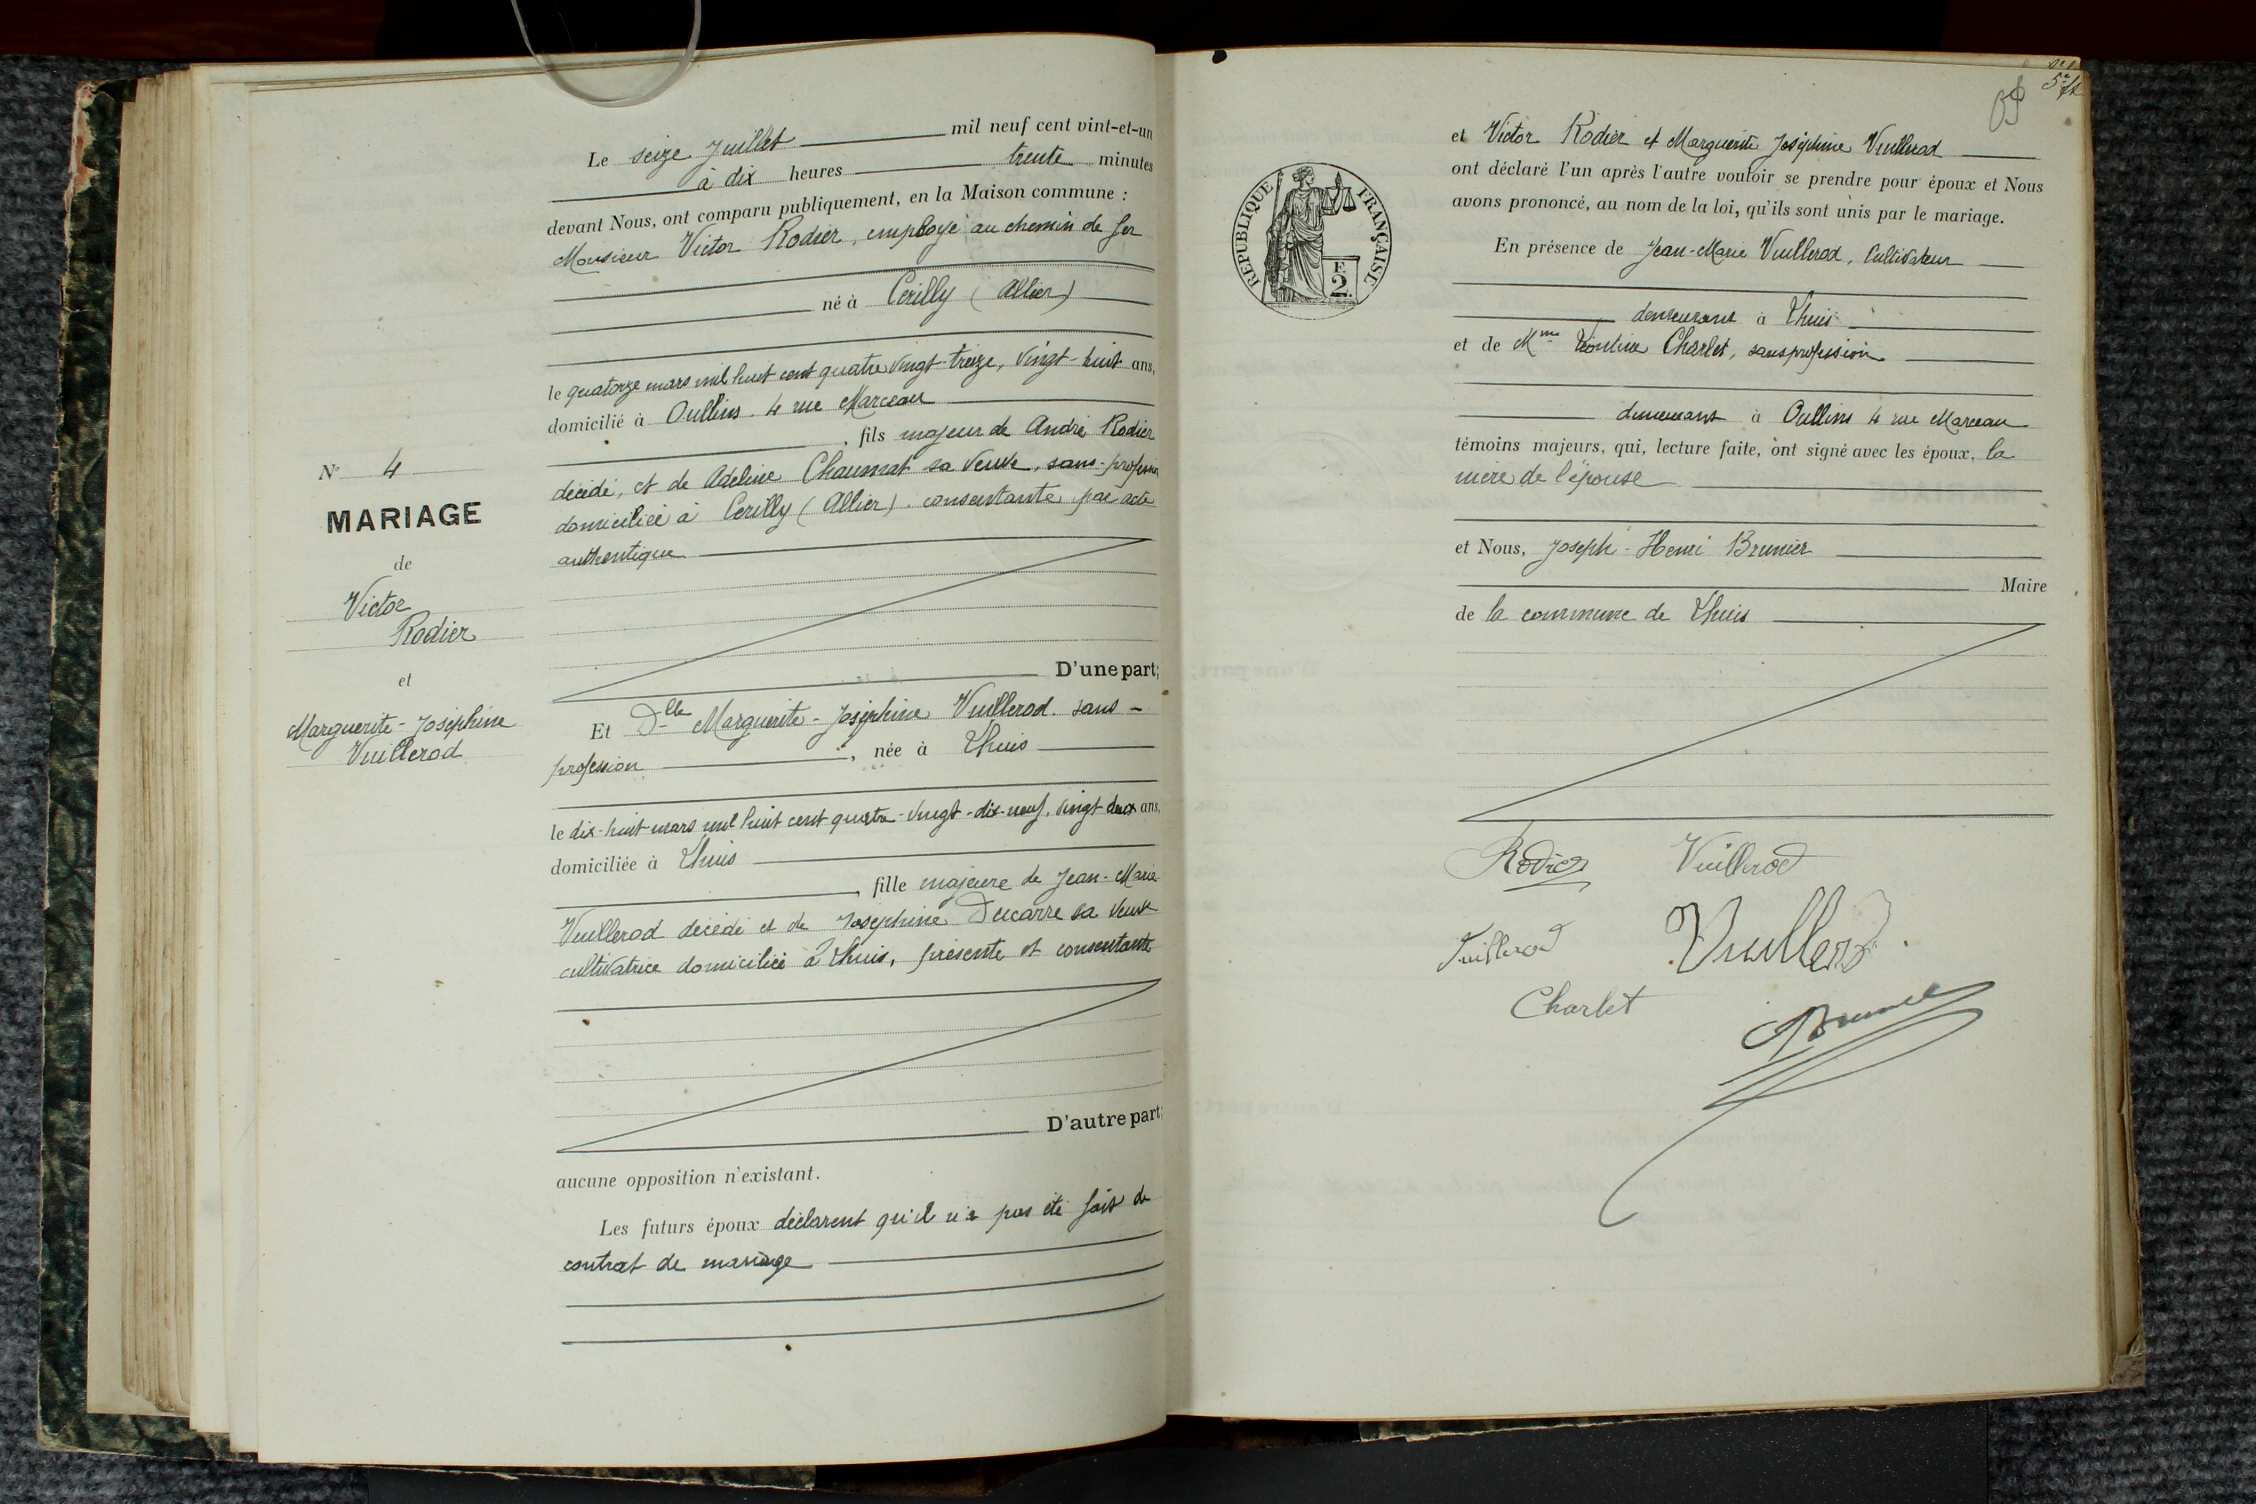 N° 4
MARIAGE
de
Victor
Rodier
et
Marguerite-Joséphine
Vuillerod
Le seize Juillet mil neuf cent vint-et-un
à dix heures trente minutes
devant Nous, ont comparu publiquement, en la Maison commune :
Monsieur Victor Rodier, employé au chemin de fer
né à Cerilly (Allier)
le quatorze mars mil huit cent quatre vingt-treize, vingt-huit ans,
domicilié à Oullins. 4 rue Marceau
, fils majeur de André Rodier
décédé, et de Adeline Chaumat sa veuve, sans-profession
domiciliée à Cerilly (Allier). consentante par acte
authentique
D'une part;
Et Dlle Marguerite-Joséphine Vuillerod. sans-
profession, née à Thuis
le dix-huit mars mil huit cent quatre-vingt-dix-neuf, vingt deux ans,
domiciliée à Thuis
, fille majeure de Jean-Marie
Vuillerod décédé et de Joséphine Ducarre sa veuve
cultivatrice domiciliée à Thuis, présente et consentante
D'autre part;
aucune opposition n'existant.
Les futurs époux déclarent qu'il n'a pas été fait de
contrat de mariage
5e
RÉPUBLIQUE FRANÇAISE
E
2.
et Victor Rodier et Marguerite Joséphine Vuillerod
ont déclaré l'un après l'autre vouloir se prendre pour époux et Nous
avons prononcé, au nom de la loi, qu'ils sont unis par le mariage.
En présence de Jean-Marie Vuillerod, Cultivateur
demeurant à Thuis
et de Mme Charlet, sans profession
demeurant à Oullins 4 rue Marceau
témoins majeurs, qui, lecture faite, ont signé avec les époux, la
mère de l'épouse
et Nous, Joseph-Henri Brunier
Maire
de la commune de Thuis
Rodier Vuillerod
Vuillerod Vuillerod
Charlet
Brunier